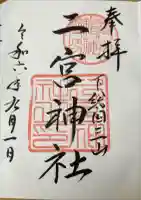 奉拝
下総国三山
二宮神社
令和六年九月一日